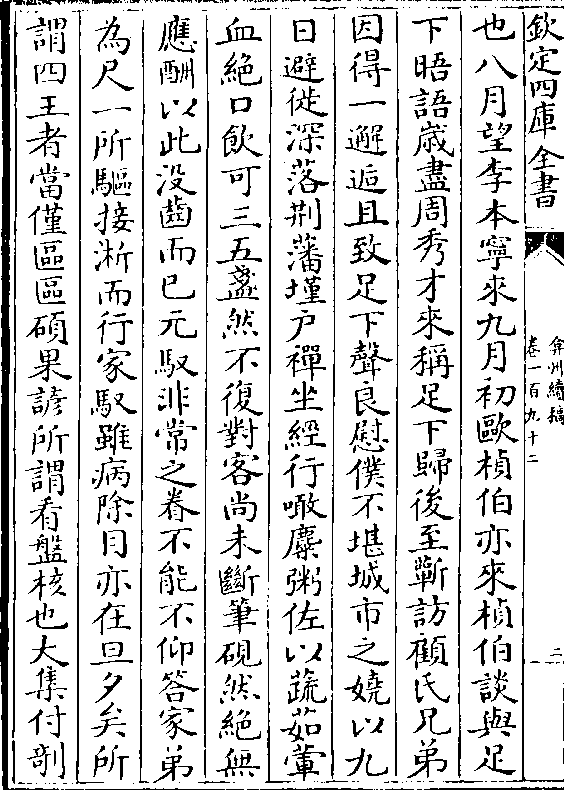 欽定四庫全書
弇州續稿
卷一百九十二
二
也八月望李本寧來九月初歐楨伯亦來楨伯談與足
下晤語歲盡周秀才來稱足下歸後至蘄訪顧氏兄弟
因得一邂逅且致足下聲良慰僕不堪城市之嬈以九
日避徙深落荆藩墐户禪坐經行噉麋粥佐以蔬茹葷
血絶口飲可三五盞然不復對客尚未斷筆硯然絶無
應酬以此没齒而已元馭非常之眷不能不仰答家弟
為尺一所驅接淅而行家馭雖病除目亦在旦夕矣所
謂四王者當僅區區碩果諺所謂看盤核也大集付剞